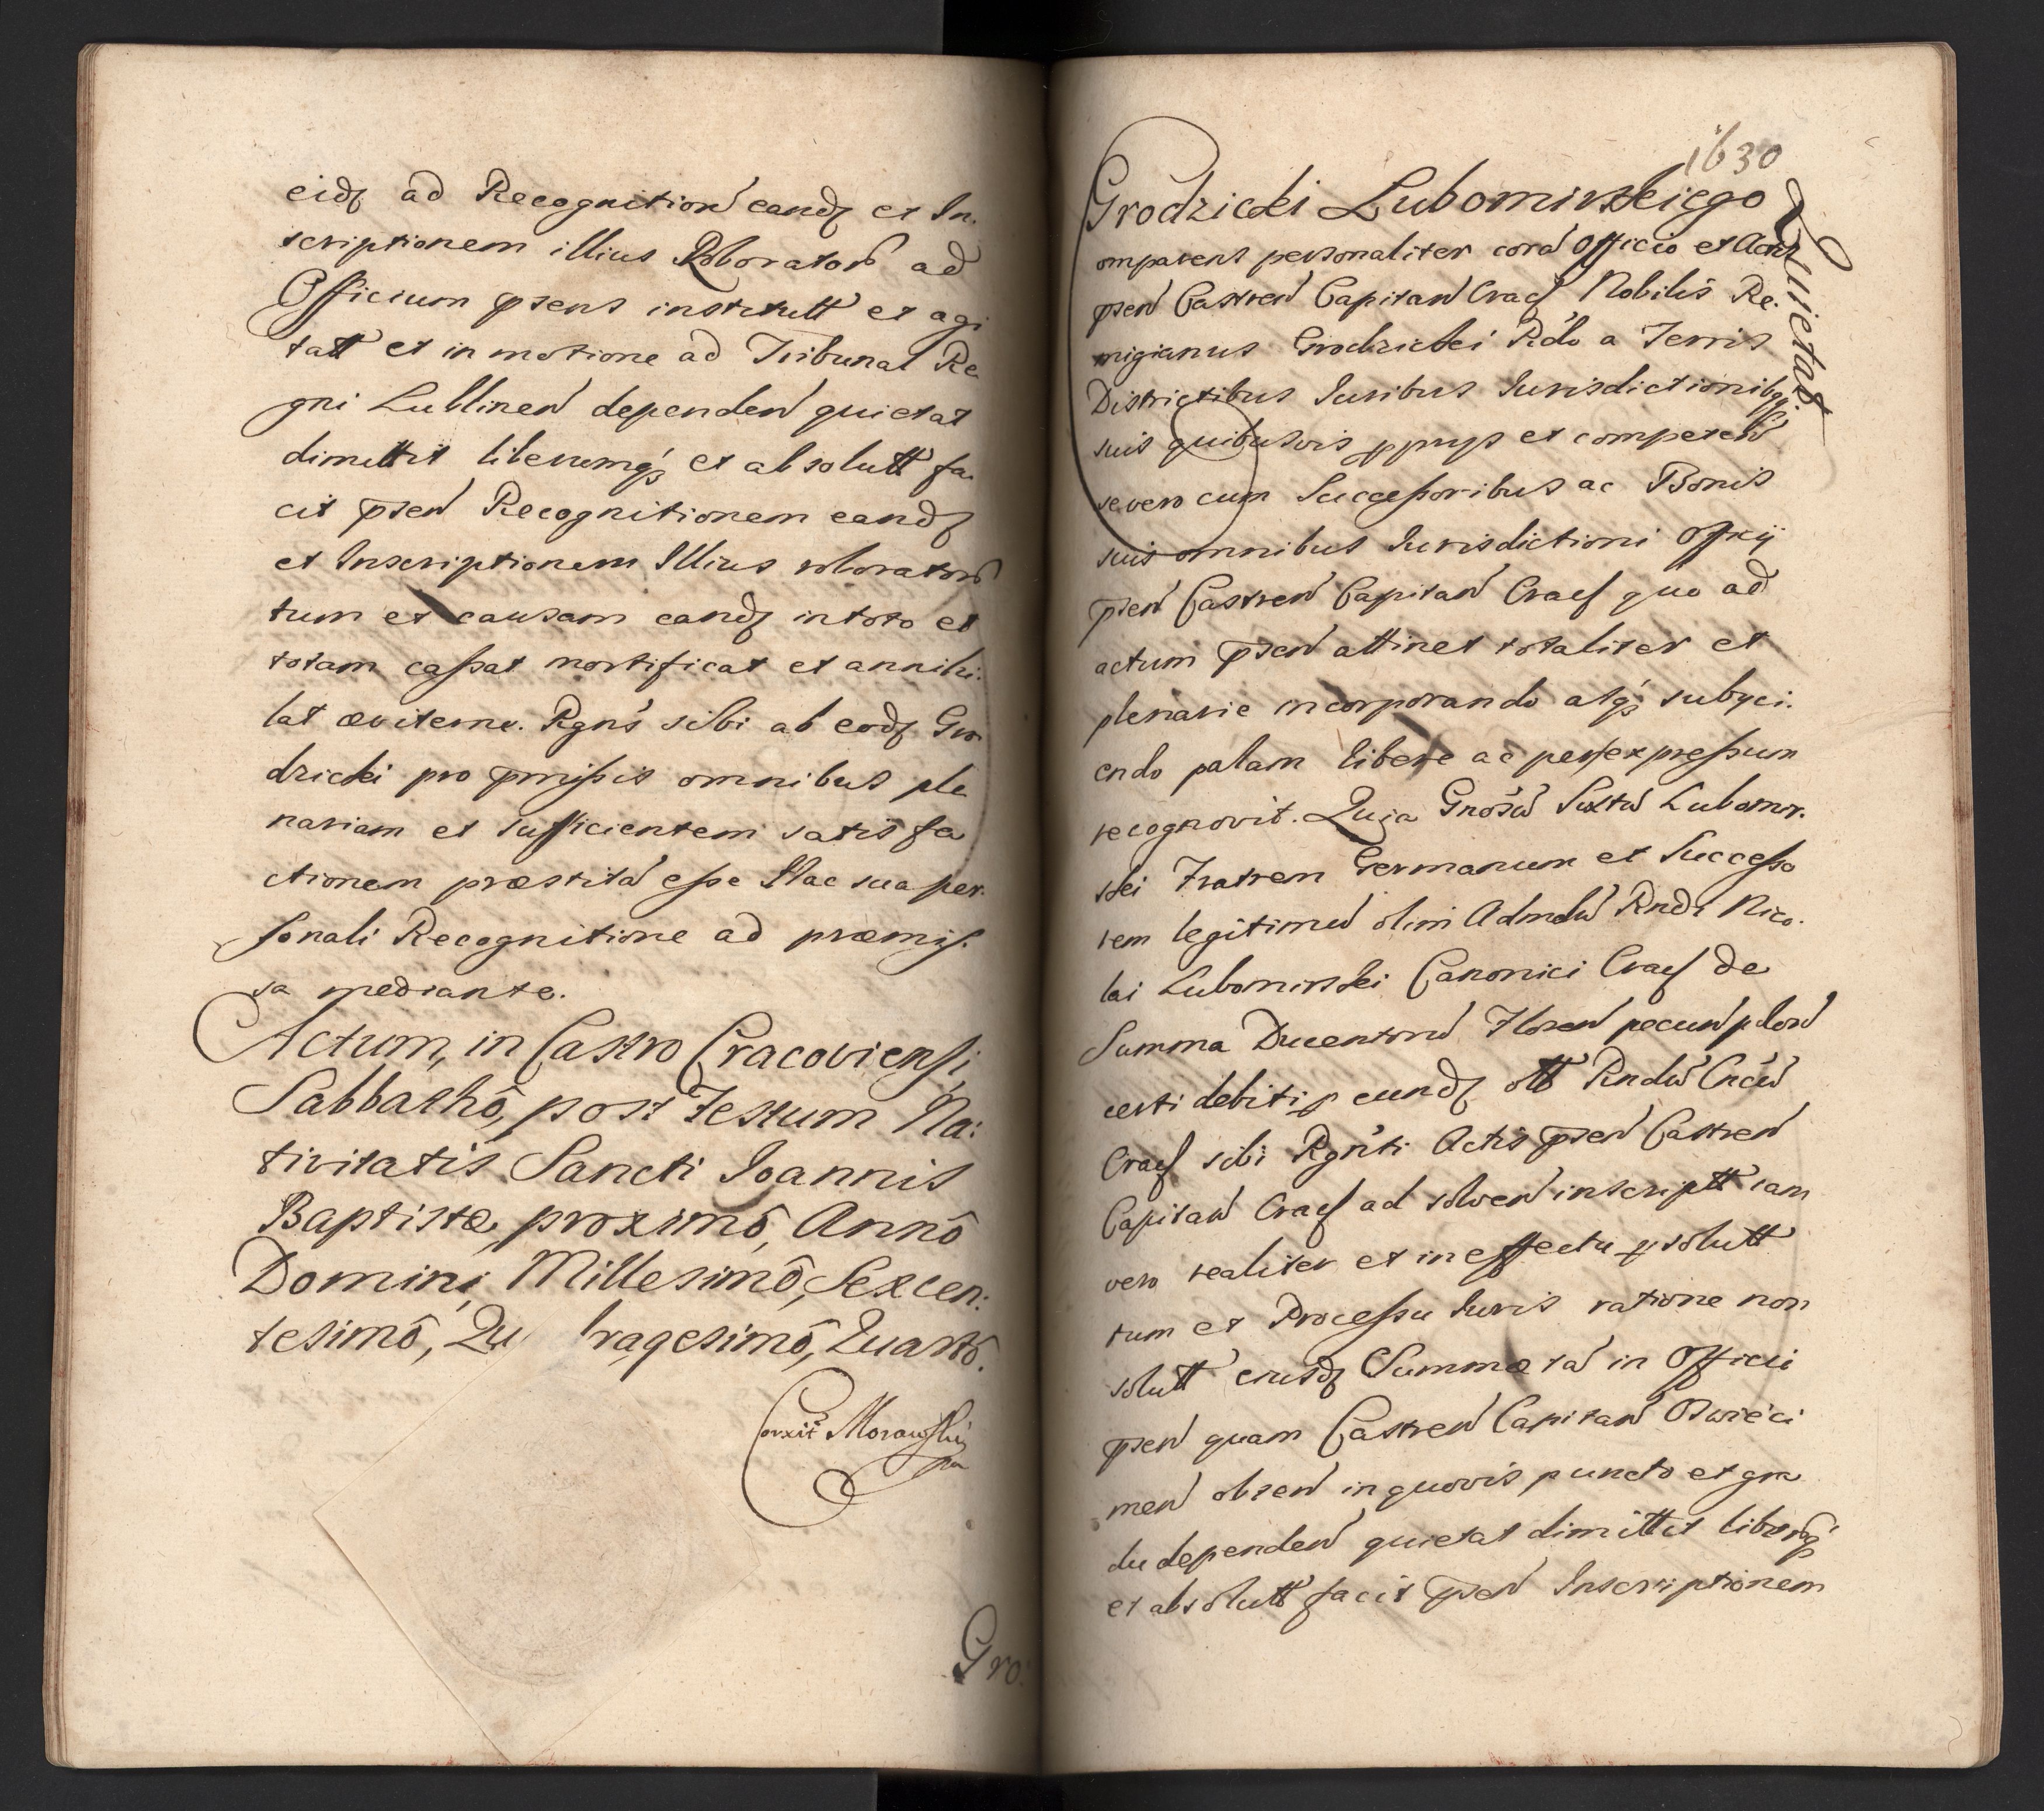 eidʒ ad Recognition̄ eandʒ et In-
scriptionem illius Roborator̄ ad
Officium p̄sens institutt et agi
tatt et in motione ad Tribunal Re
gni Lublinen̄ dependen̄ quietat
dimittit liberumqʒ et absolutt fa
cit p̄sen̄ Recognitionem eandʒ
et Inscriptionem Illius roborator̄
tum et causam eandʒ in toto et
totam cassat mortificat et annihi-
lat æviterne. Rgn̄s sibi ab eodʒ Gro
dzicki pro p̄missis omnibus ple
nariam et sufficientem satis fa
ctionem præstitā esse Hac sua per-
sonali Recognitione ad præmis-
sa mediante.
Actum, in Castro Cracoviensi,
Sabbathô, post Festum Na:
tivitatis Sancti Ioannis
Baptistæ, proximô, Annô
Domini, Millesimô, Sexcen:
tesimô, Qu ragesimô, Quartô.
Corxit Morawski
mp
Gro:
1630
Grodzicki Lubomirskiego
Quietat
omparens personaliter corā Officio et Actis
p̄sen̄ Castren̄ Capitan̄ Crac̄ Nobilis Re-
migianus Grodzicki Rdo a Terris
Districtibus Iuribus Iurisdictionibqʒ
suis quibusvis ꝓprys et competen̄
se vero cum Successoribus ac Bonis
suis omnibus Iurisdictioni Offcij
p̄sen̄ Castren̄ Capitan̄ Crac̄ quo ad
actum p̄sen̄ attinet totaliter et
plenarie incorporando atqʒ subyci-
endo palam libere ac per expressum
recognovit. Quia Gnōsū Lubomir-
ski Fratrem Germanum et Successo
rem legitimū olim Admdū Rndi Nico-
lai Lubomirski Canonici Crac̄ de
Summa Ducentorū Floren̄ pecun̄ polon̄
certi debiti ꝑ eundʒ ott Rndū Cncū
Crac̄ sibi Rgn̄ti Actis p̄sen̄ Castren̄
Capitan̄ Crac̄ ad solven̄ inscriptt iam
vero realiter et in effectu ꝑsolutt
tum et Processu Iuris ratione non
solutt eiusdʒ Summæ tā in Officii
p̄sen̄ quam Castren̄ Capitan̄ Oswiēci
men̄ obten̄ in quovis puncto et gra
du dependen̄ quietat dimittit liberūqʒ
et absolutt facit p̄sen̄ Inscriptionem